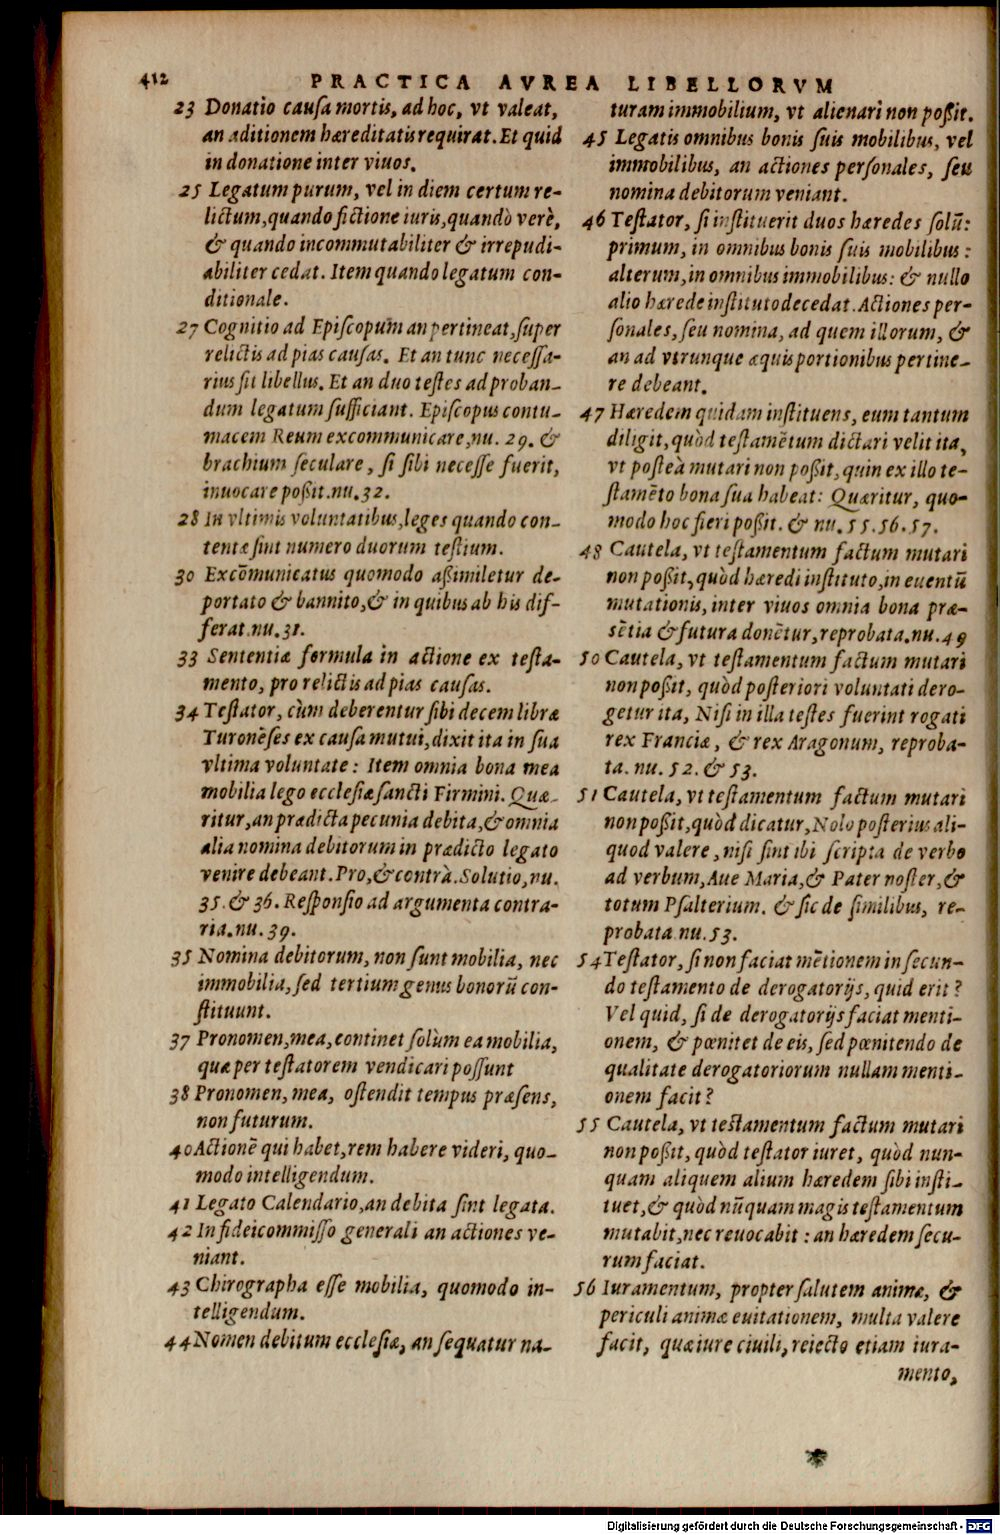 412 PRACTICA AVREA LIBELLORVM
23 Donatio causa mortis, ad hoc, vt valeat,
an aditionem hæreditatis requirat. Et quid
in donatione inter viuos.
25 Legatum purum, vel in diem certum re-
lictum, quando fictione iuris, quandò verè,
& quando incommutabiliter & irrepudi-
abiliter cedat. Item quando legatum con-
ditionale.
27 Cognitio ad Episcopum an pertineat, super
relictis ad pias causas. Et an tunc necessa-
rius sit libellus. Et an duo testes ad proban-
dum legatum sufficiant. Episcopus contu-
macem Reum excommunicare, nu. 29. &
brachium seculare, si sibi necesse fuerit,
inuocare poßit. nu. 32.
28 In vltimis voluntatibus, leges quando con-
tentæ sint numero duorum testium.
30 Excōmunicatus quomodo aßimiletur de-
portato & bannito, & in quibus ab his dif-
ferat. nu. 31.
33 Sententiæ formula in actione ex testa-
mento, pro relictis ad pias causas.
34 Testator, cùm deberentur sibi decem libræ
Turonēses ex causa mutui, dixit ita in sua
vltima voluntate: Item omnia bona mea
mobilia lego ecclesiæ sancti Firmini. Quæ-
ritur, an prædicta pecunia debita, & omnia
alia nomina debitorum in prædicto legato
venire debeant. Pro, & contrà. Solutio, nu.
35. & 36. Responsio ad argumenta contra-
ria. nu. 39.
35 Nomina debitorum, non sunt mobilia, nec
immobilia, sed tertium genus bonorū con-
stituunt.
37 Pronomen, mea, continet solùm ea mobilia,
quæ per testatorem vendicari possunt
38 Pronomen, mea, ostendit tempus præsens,
non futurum.
40 Actionē qui habet, rem habere videri, quo-
modo intelligendum.
41 Legato Calendario, an debita sint legata.
42 In fideicommisso generali an actiones ve-
niant.
43 Chirographa esse mobilia, quomodo in-
telligendum.
44 Nomen debitum ecclesiæ, an sequatur na-
turam immobilium, vt alienari non poßit.
45 Legatis omnibus bonis suis mobilibus, vel
immobilibus, an actiones personales, seu
nomina debitorum veniant.
46 Testator, si instituerit duos hæredes solū:
primum, in omnibus bonis suis mobilibus:
alterum, in omnibus immobilibus: & nullo
alio hærede instituto decedat. Actiones per-
sonales, seu nomina, ad quem illorum, &
an ad vtrunque æquis portionibus pertine-
re debeant.
47 Hæredem quidam instituens, eum tantum
diligit, quòd testamētum dictari velit ita,
vt posteà mutari non poßit, quin ex illo te-
stamēto bona sua habeat: Quæritur, quo-
modo hoc fieri poßit. & nu. 55. 56. 57.
48 Cautela, vt testamentum factum mutari
non poßit, quòd hæredi instituto, in euentū
mutationis, inter viuos omnia bona præ-
sētia & futura donētur, reprobata. nu. 49
50 Cautela, vt testamentum factum mutari
non poßit, quòd posteriori voluntati dero-
getur ita, Nisi in illa testes fuerint rogati
rex Franciæ, & rex Aragonum, reproba-
ta. nu. 52. & 53.
51 Cautela, vt testamentum factum mutari
non poßit, quòd dicatur, Nolo posterius ali-
quod valere, nisi sint ibi scripta de verbo
ad verbum, Aue Maria, & Pater noster, &
totum Psalterium. & sic de similibus, re-
probata nu. 53.
54 Testator, si non faciat mētionem in secun-
do testamento de derogatorijs, quid erit?
Vel quid, si de derogatorijs faciat menti-
onem, & pœnitet de eis, sed pœnitendo de
qualitate derogatoriorum nullam menti-
onem facit?
55 Cautela, vt testamentum factum mutari
non poßit, quòd testator iuret, quòd nun-
quam aliquem alium hæredem sibi insti-
tuet, & quòd nūquam magis testamentum
mutabit, nec reuocabit: an hæredem secu-
rum faciat.
56 Iuramentum, propter salutem animæ, &
periculi animæ euitationem, multa valere
facit, quæ iure ciuili, reiecto etiam iura-
mento,
Digitalisierung gefördert durch die Deutsche Forschungsgemeinschaft - DFG